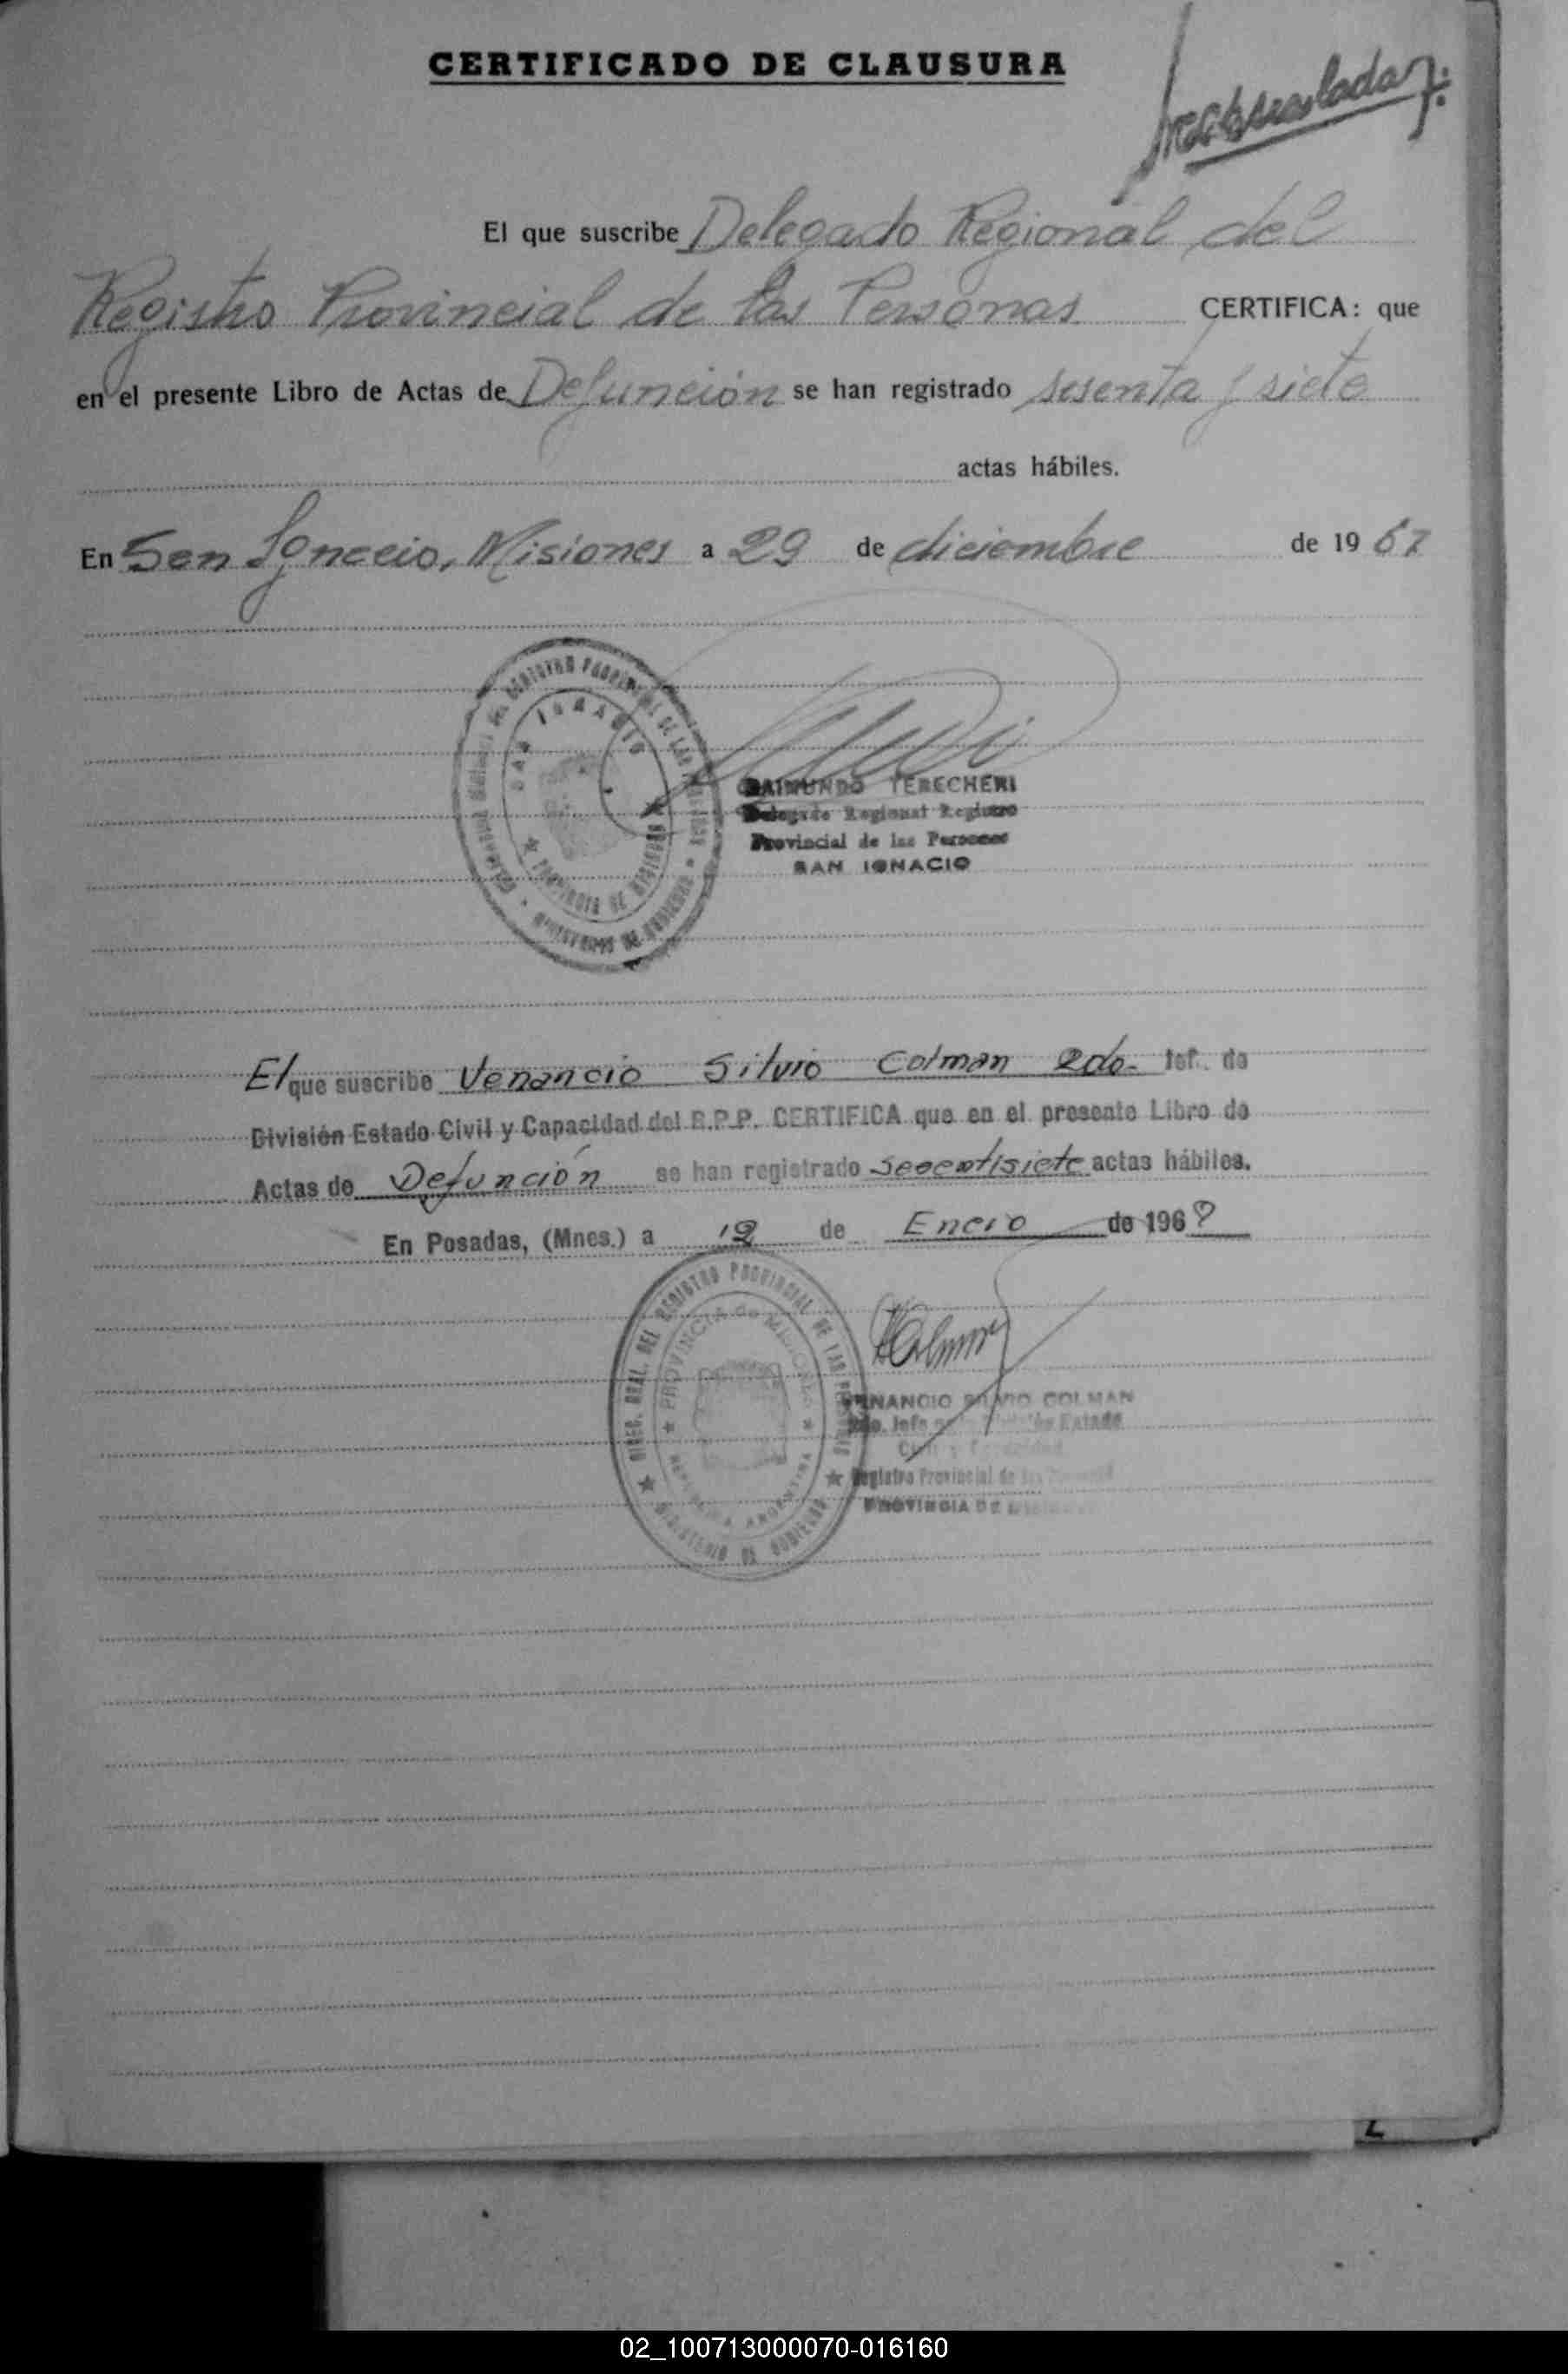 CERTIFICADO DE CLAUSURA
El que suscribe Delegado Regional del
Registro Provincial de las Personas CERTIFICA: que
en el presente Libro de Actas de Defunción se han registrado sesenta y siete
actas hábiles.
En San Ignacio, Misiones a 29 de diciembre de 1967
SAN IGNACIO
PROVINCIA DE MISIONES
RAIMUNDO TERECHERI
Delegado Regional Registro
Provincial de las Personas
SAN IGNACIO
El que suscribe Venancio Silvio Colman 2do. Jef. de
División Estado Civil y Capacidad del R.P.P. CERTIFICA que en el presente Libro de
Actas de Defunción se han registrado actas hábiles.
En Posadas, (Mnes.) a 12 de Enero de 196
DIREC. GRAL. DEL REGISTRO PROVINCIAL DE LAS PERSONAS
MINISTERIO DE GOBIERNO
PROVINCIA de MISIONES
REPUBLICA ARGENTINA
VENANCIO SILVIO COLMAN
2do. Jefe División Estado
Civil y Capacidad
Registro Provincial de las
PROVINCIA DE
L
02_100713000070-016160